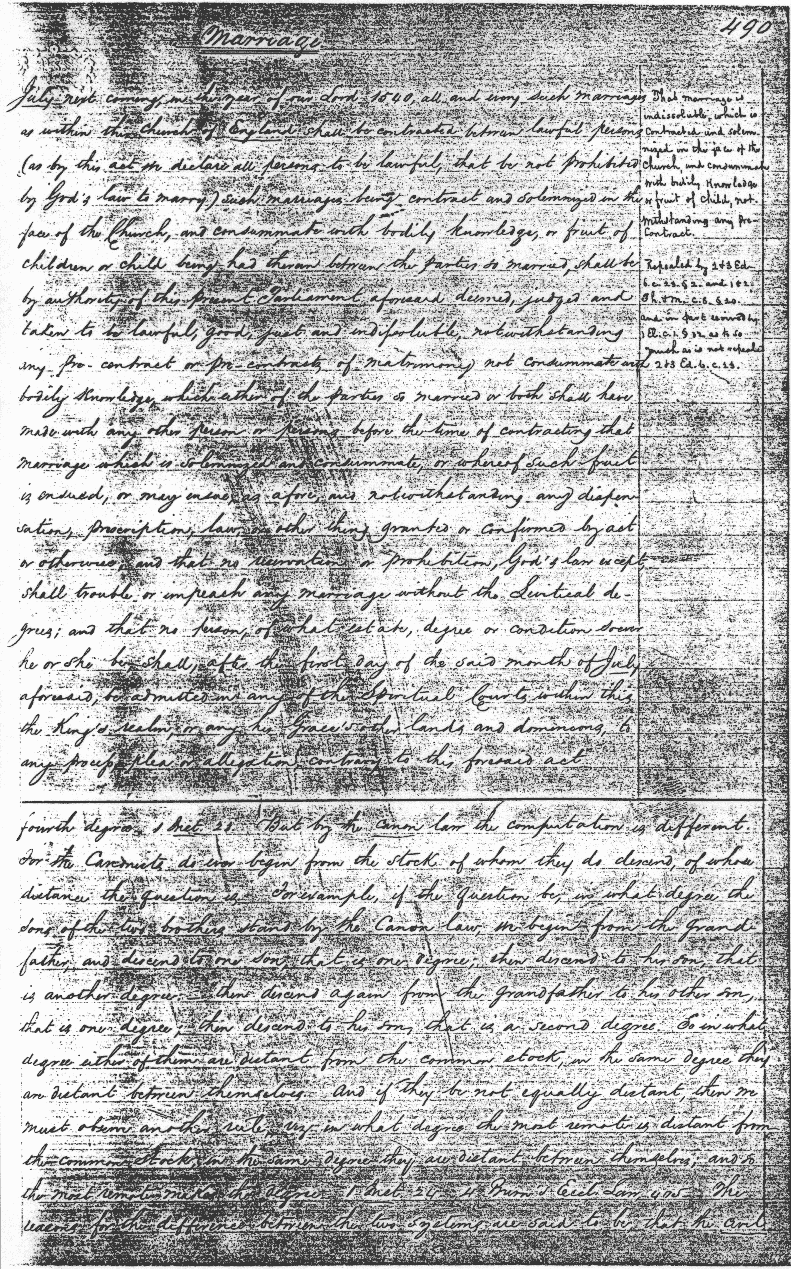 490
Marriage
July next coming, in the year of our Lord 1540, all and every such marriages
as within this Church of England shall be contracted between lawful persons
(as by this act we declare all persons to be lawful, that be not prohibited
by God's law to marry,) such marriages being contract and solemnized in the
face of the Church, and consummate with bodily knowledge, or fruit of
children or child being had therein between the parties so married, shall be
by authority of this present Parliament, aforesaid deemed, judged and
taken to be lawful, good, just and indissoluble, notwithstanding
any pre-contract or pre-contracts of matrimony not consummate with
bodily knowledge, which either of the parties so married or both shall have
made with any other person or persons before the time of contracting that
marriage which is solemnized and consummate, or whereof such fruit
is ensued, or may ensue, as afore, and notwithstanding any dispen-
sation, prescription, law, or other thing granted or confirmed by act
or otherwise; and that no reservation or prohibition, God's law except
shall trouble or impeach any marriage without the Levitical de-
grees; and that no person, of what estate, degree or condition soever
he or she be, shall, after the first day of the said month of July
aforesaid, be admitted in any of the Spiritual Courts within this
the King's realm, or any his Grace's other lands and dominions, to
any process plea or allegation contrary to this foresaid act
That marriage is
indissoluble, which is
contracted and solem-
nized in the face of the
Church, and consummate
with bodily knowledge
or fruit of child, not-
withstanding any pre-
contract.
Repealed by 2 & 3 Ed.
6. c. 23. § 2. and 1 & 2.
Ph. & M. c. 8. § 20.
and in part revived by
1 El. c. 1. § 32. as to so
much as is not repeal
2 & 3 Ed. 6. c. 23.
fourth degree. 1 Inst. 23. But by the canon law the computation is different.
For the Canonists do ever begin from the stock of whom they do descend, of whose
distance the question is. For example, if the question be, in what degree the
sons of the two brothers stand by the Canon law, we begin from the grand-
father, and descend to one son, that is one degree; then descend to his son, that
is another degree; then descend again from the grandfather to his other son,
that is one degree, then descend to his son, that is a second degree. So in what
degree either of them are distant from the common stock, in the same degree they
are distant between themselves. And if they be not equally distant, then we
must observe another rule, viz. in what degree the most remote is distant from
the common stock, in the same degree they are distant between themselves; and so
the most remote maketh the degree. 1 Inst. 24. Burn's Eccl. Law The
reasons for the difference between the two systems are said to be, that the civil